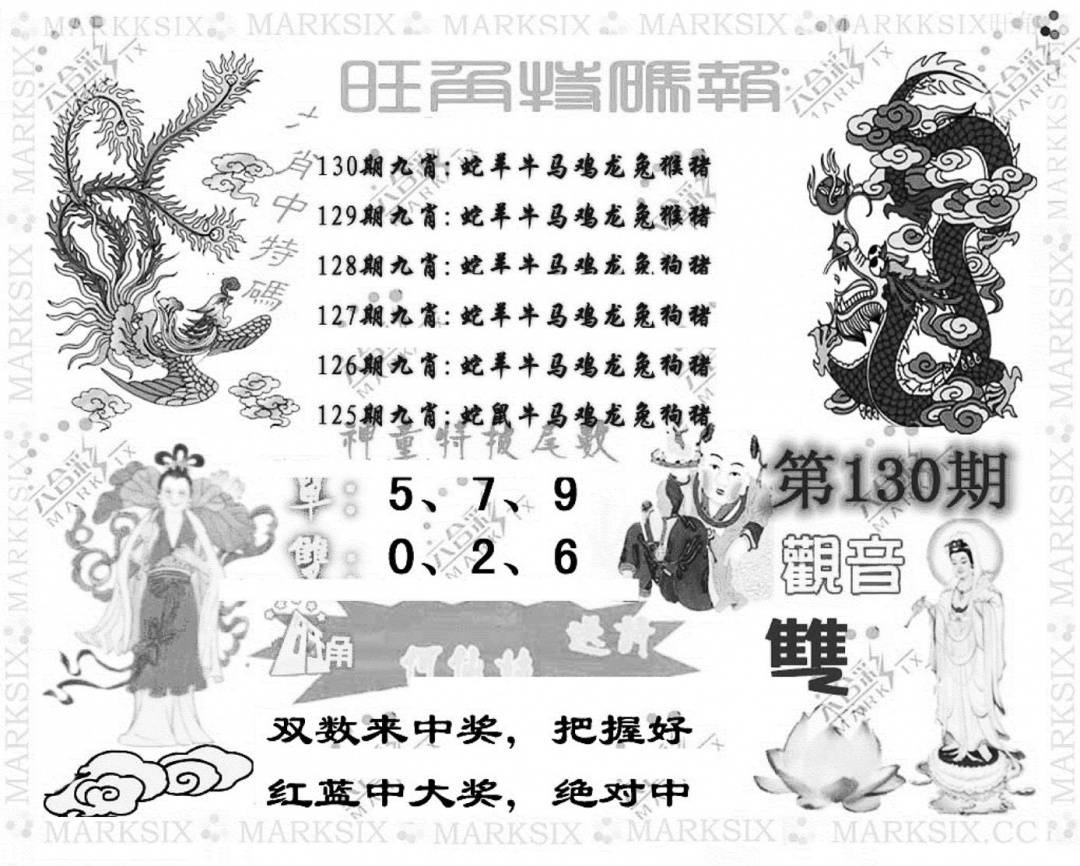 MARKSIX MARKKSIX MARKSIX MARKSIX MARKKSIX
旺角特碼報
九肖中特碼
130期九肖:蛇羊牛马鸡龙兔猴猪
129期九肖:蛇羊牛马鸡龙兔猴猪
128期九肖:蛇羊牛马鸡龙兔狗猪
127期九肖:蛇羊牛马鸡龙兔狗猪
126期九肖:蛇羊牛马鸡龙兔狗猪
125期九肖:蛇鼠牛马鸡龙兔狗猪
神童特报尾数
單:5、7、9
雙:0、2、6
第130期
觀音
雙
旺角
何仙姑
双数来中奖，把握好
红蓝中大奖，绝对中
MARKSIX MARKSIX MARKSIX MARKSIX MARKSIX.CC